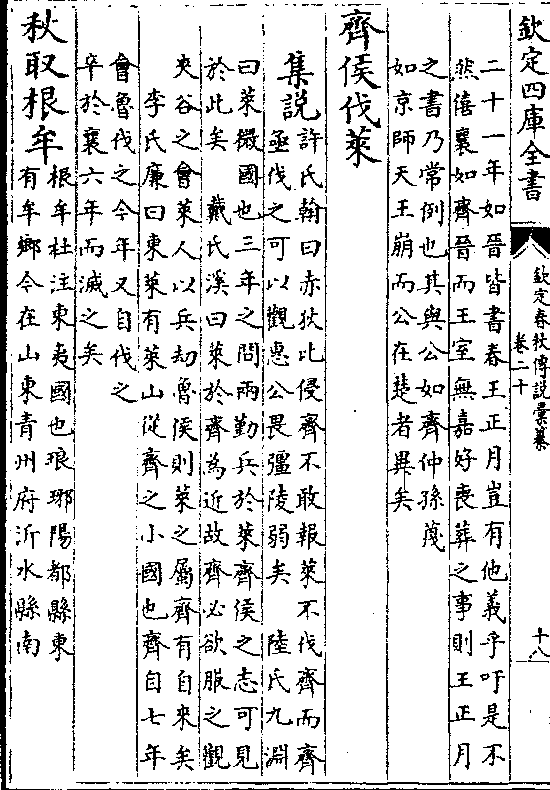 欽定四庫全書
欽定春秋傳說彙纂
卷二十
十八
二十一年如晉皆書春王正月豈有他義乎吁是不
然僖襄如齊晉而王室無嘉好喪葬之事則王正月
之書乃常例也其與公如齊仲孫蔑
如京師天王崩而公在楚者異矣
齊侯伐萊
集說許氏翰曰赤狄比侵齊不敢報萊不伐齊而齊
亟伐之可以觀惠公畏彊陵弱矣 陸氏九淵
曰萊微國也三年之間兩勤兵於萊齊侯之志可見
於此矣 戴氏溪曰萊於齊為近故齊必欲服之觀
夾谷之會萊人以兵劫魯侯則萊之屬齊有自來矣
李氏廉曰東萊有萊山從齊之小國也齊自七年
會魯伐之今年又自伐之
卒於襄六年而滅之矣
秋取根牟
根牟杜注東夷國也琅琊陽都縣東
有牟鄉今在山東青州府沂水縣南